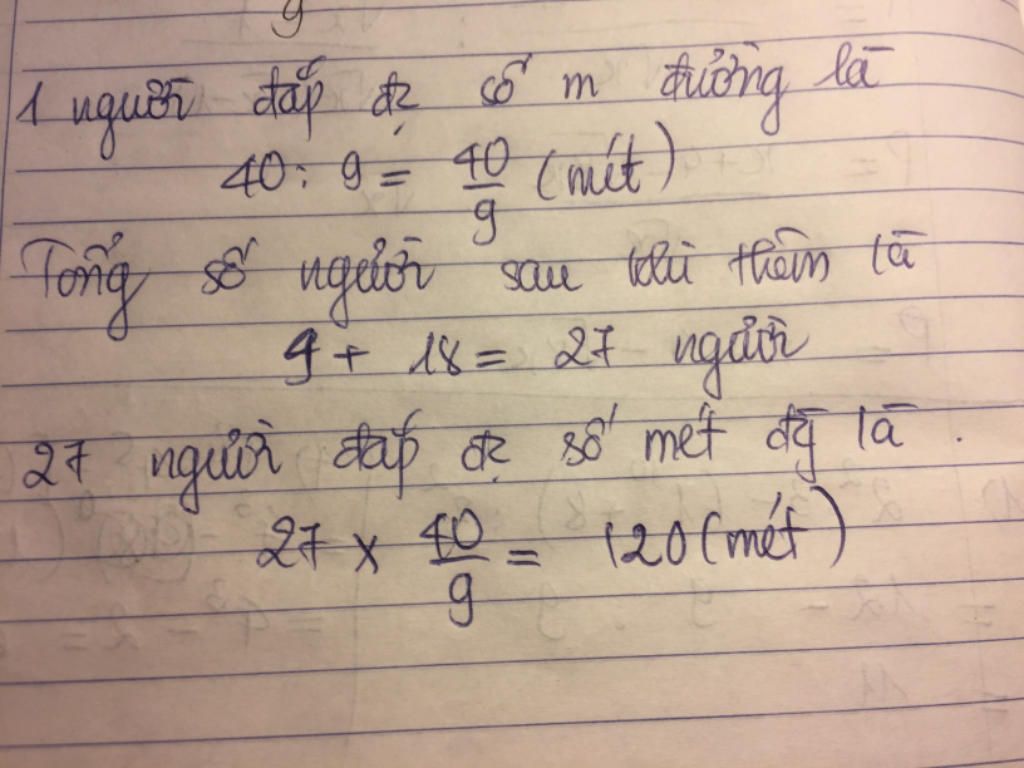 9
1 người đắp đc số m đường là
40 : 9 = 40/9 (mét)
Tổng số người sau khi thêm là
9 + 18 = 27 người
27 người đắp đc số mét đg là .
27 x 40/9 = 120 (mét)